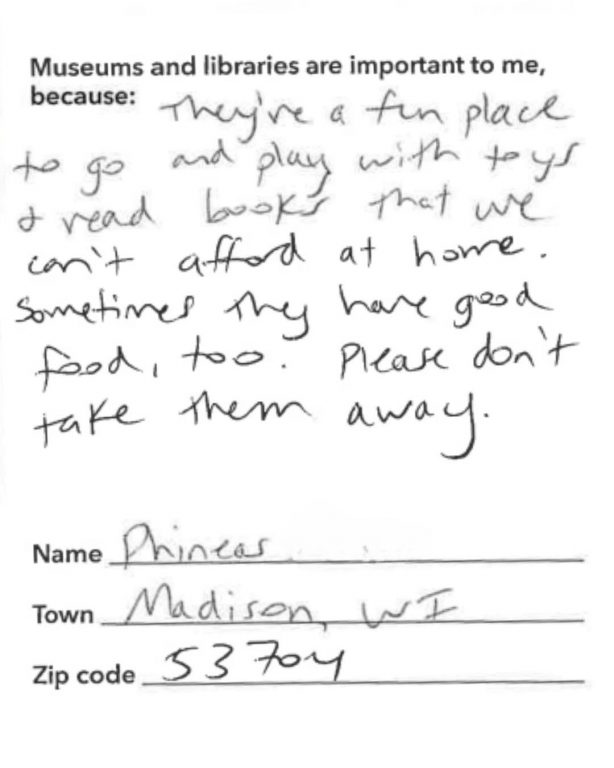 Museums and libraries are important to me,
because: They're a fun place
to go and play with toys
& read books that we
can't afford at home.
Sometimes they have good
food, too. Please don't
take them away.
Name Phineas
Town Madison, WI
Zip code 53704